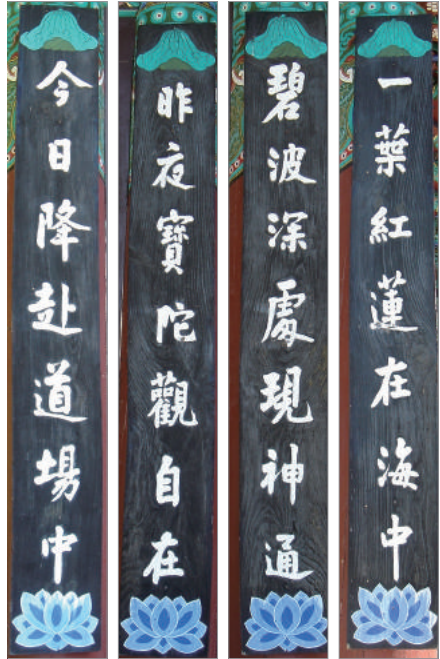 一葉紅蓮在海中
碧波深處現神通
昨夜寶陀觀自在
今日降赴道場中